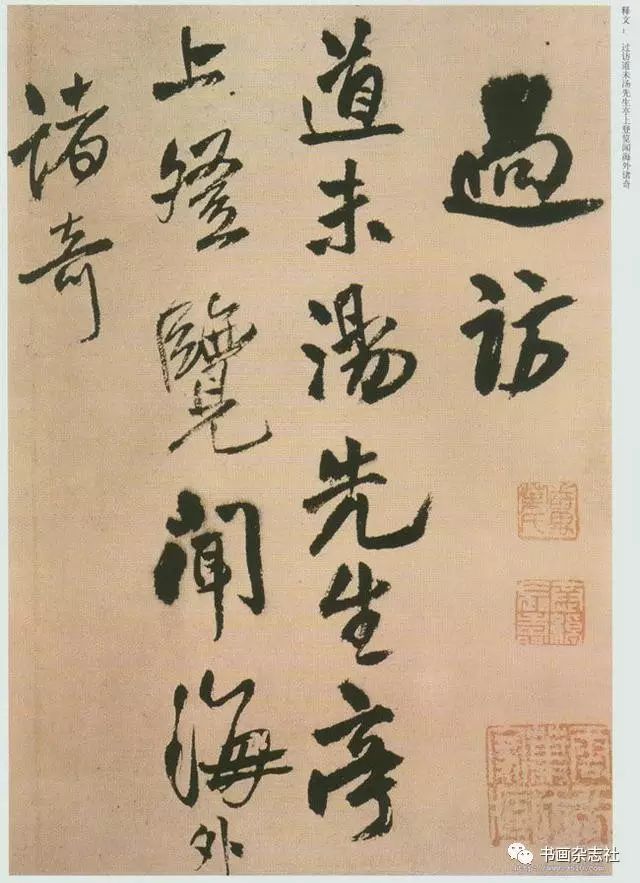 释文：过访道未汤先生亭上登览闻海外诸奇
過訪
道未湯先生亭
上登覽聞海外
諸奇
书画杂志社